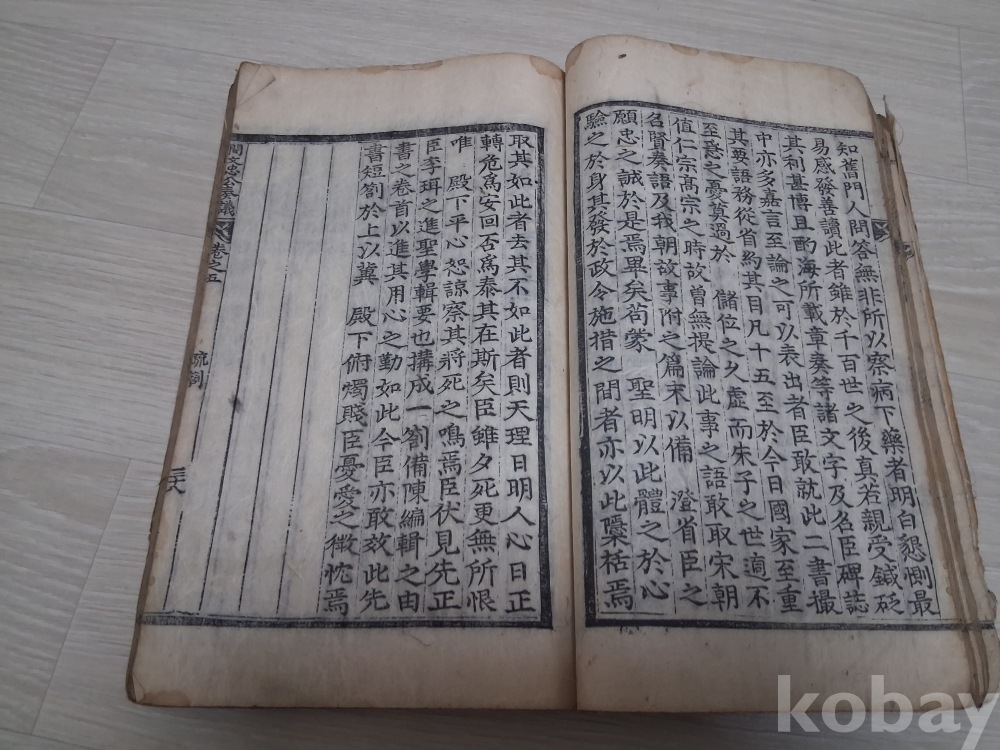 知舊門人問答無非所以察病下藥者明白懇惻最
易感發善讀此者雖於千百世之後真若親受鍼砭
其利甚博且酌海所載章奏等諸文字及名臣碑誌
中亦多嘉言至論之可以表出者臣敢就此二書撮
其要語務從省約其目凡十五至於今日國家至重
至憂之憂莫過於 儲位之久虛而朱子之世適不
値仁宗高宗之時故曾無提論此事之語敢取宋朝
名賢奏語及我朝故事附之篇末以備 澄省臣之
願忠之誠於是焉畢矣苟蒙 聖明以此體之於心
驗之於身其發於政令施措之間者亦以此檃栝焉
取其如此者去其不如此者則天理日明人心日正
轉危爲安回否爲泰其在斯矣臣雖夕死更無所恨
唯 殿下平心恕諒察其將死之鳴焉臣伏見先正
臣李珥之進聖學輯要也搆成一劄備陳編輯之由
書之卷首以進其用心之勤如此今臣亦敢效此先
書短劄於上以冀 殿下俯燭賤臣憂愛之微忱焉
文忠公 卷之五
疏劄
kobay